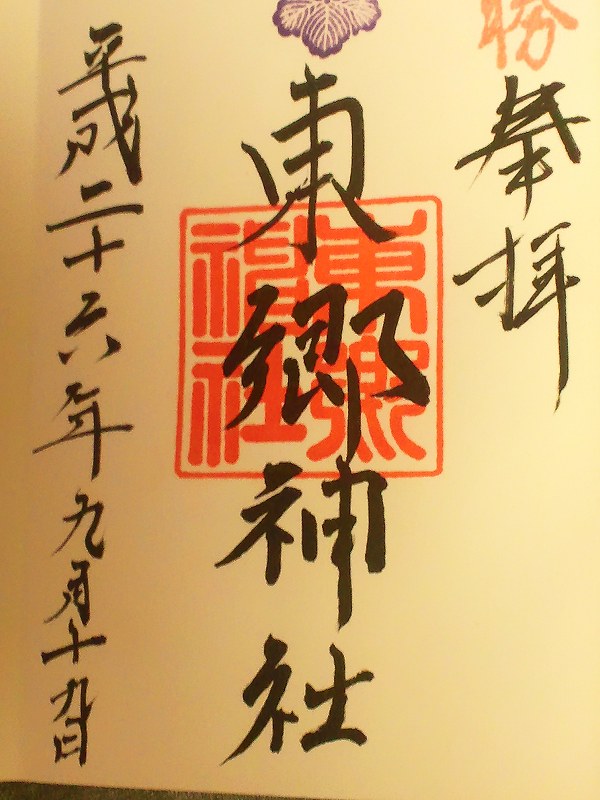 勝
奉拝
東郷神社
東郷神社
平成二十六年九月十九日